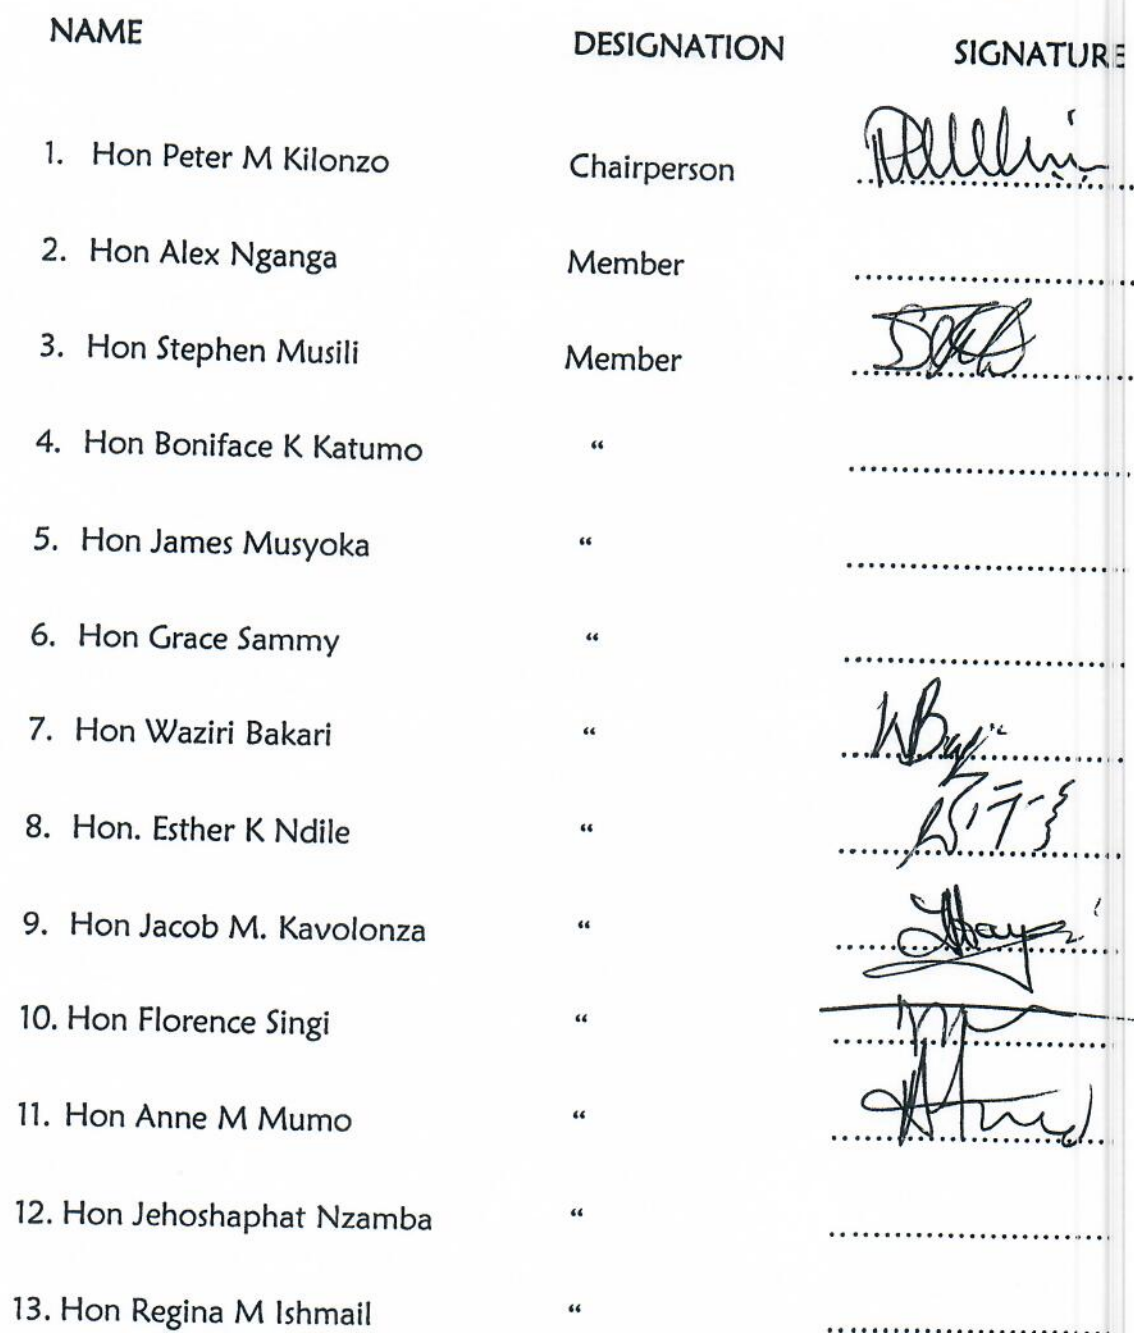 NAME DESIGNATION SIGNATURE
1. Hon Peter M Kilonzo Chairperson
2. Hon Alex Nganga Member ..............................
3. Hon Stephen Musili Member ..............................
4. Hon Boniface K Katumo “ ..............................
5. Hon James Musyoka “ ..............................
6. Hon Grace Sammy “ ..............................
7. Hon Waziri Bakari “ ..............................
8. Hon. Esther K Ndile “ ..............................
9. Hon Jacob M. Kavolonza “ ..............................
10. Hon Florence Singi “ ..............................
11. Hon Anne M Mumo “ ..............................
12. Hon Jehoshaphat Nzamba “ ..............................
13. Hon Regina M Ishmail “ ..............................